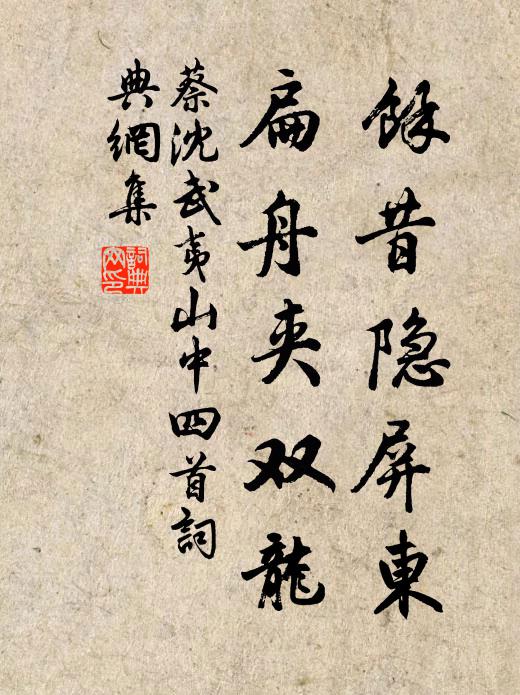 餘昔隐屏東
扁舟夹双龍
蔡沈武夷山中四首詞
典網集
詞典
网印